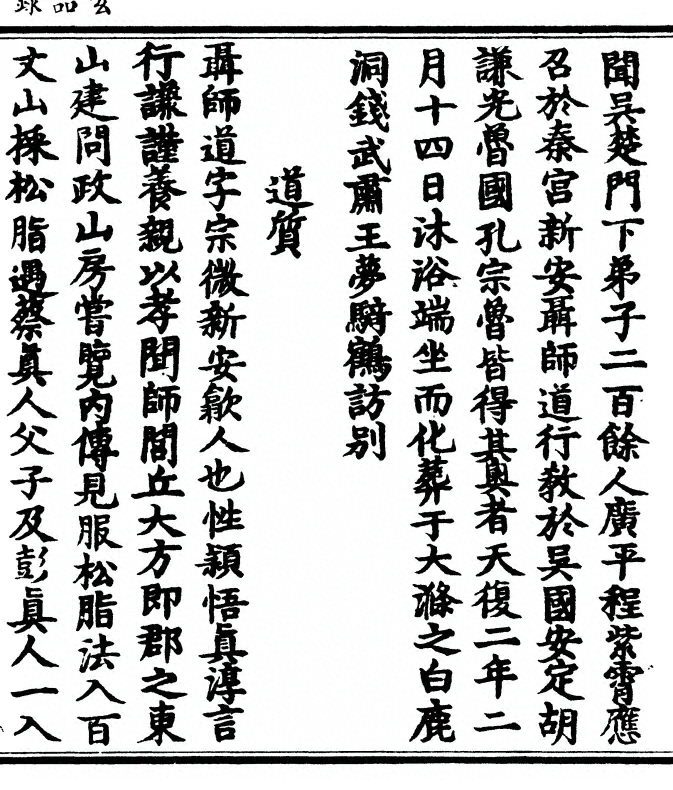 玄品錄
聞吳楚門下弟子二百餘人廣平程紫霄應
召於秦宮新安聶師道行敎於吳國安定胡
謙光魯國孔宗魯皆得其奧者天復二年二
月十四日沐浴端坐而化葬于大滌之白鹿
洞錢武肅王夢騎鶴訪別
道質
聶師道字宗微新安歙人也性穎悟眞淳言
行謙謹養親以孝聞師問丘大方即郡之東
山建問政山房嘗覽內傳見服松脂法入百
丈山採松脂遇蔡眞人父子及彭眞人一入